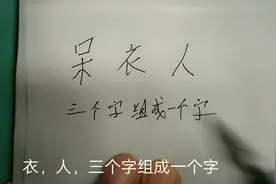 呆衣人
三个字组成一个字
衣，人，三个字组成一个字